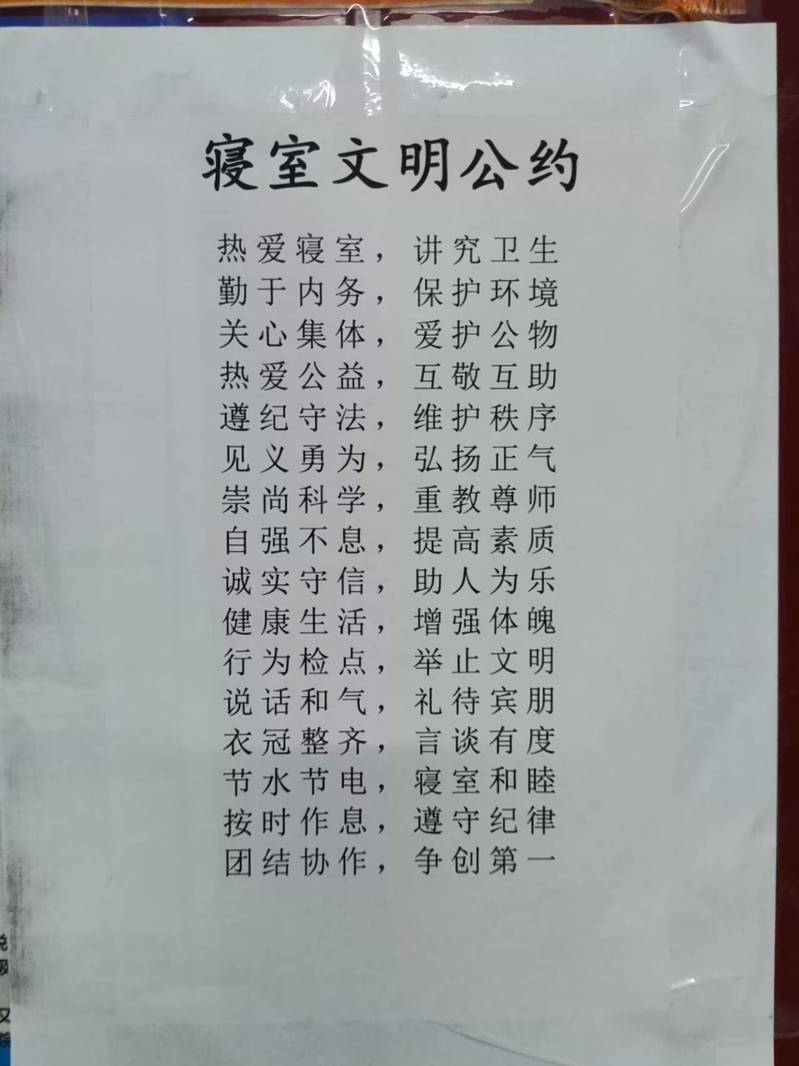 寝室文明公约
热爱寝室，讲究卫生
勤于内务，保护环境
关心集体，爱护公物
热爱公益，互敬互助
遵纪守法，维护秩序
见义勇为，弘扬正气
崇尚科学，重教尊师
自强不息，提高素质
诚实守信，助人为乐
健康生活，增强体魄
行为检点，举止文明
说话和气，礼待宾朋
衣冠整齐，言谈有度
节水节电，寝室和睦
按时作息，遵守纪律
团结协作，争创第一